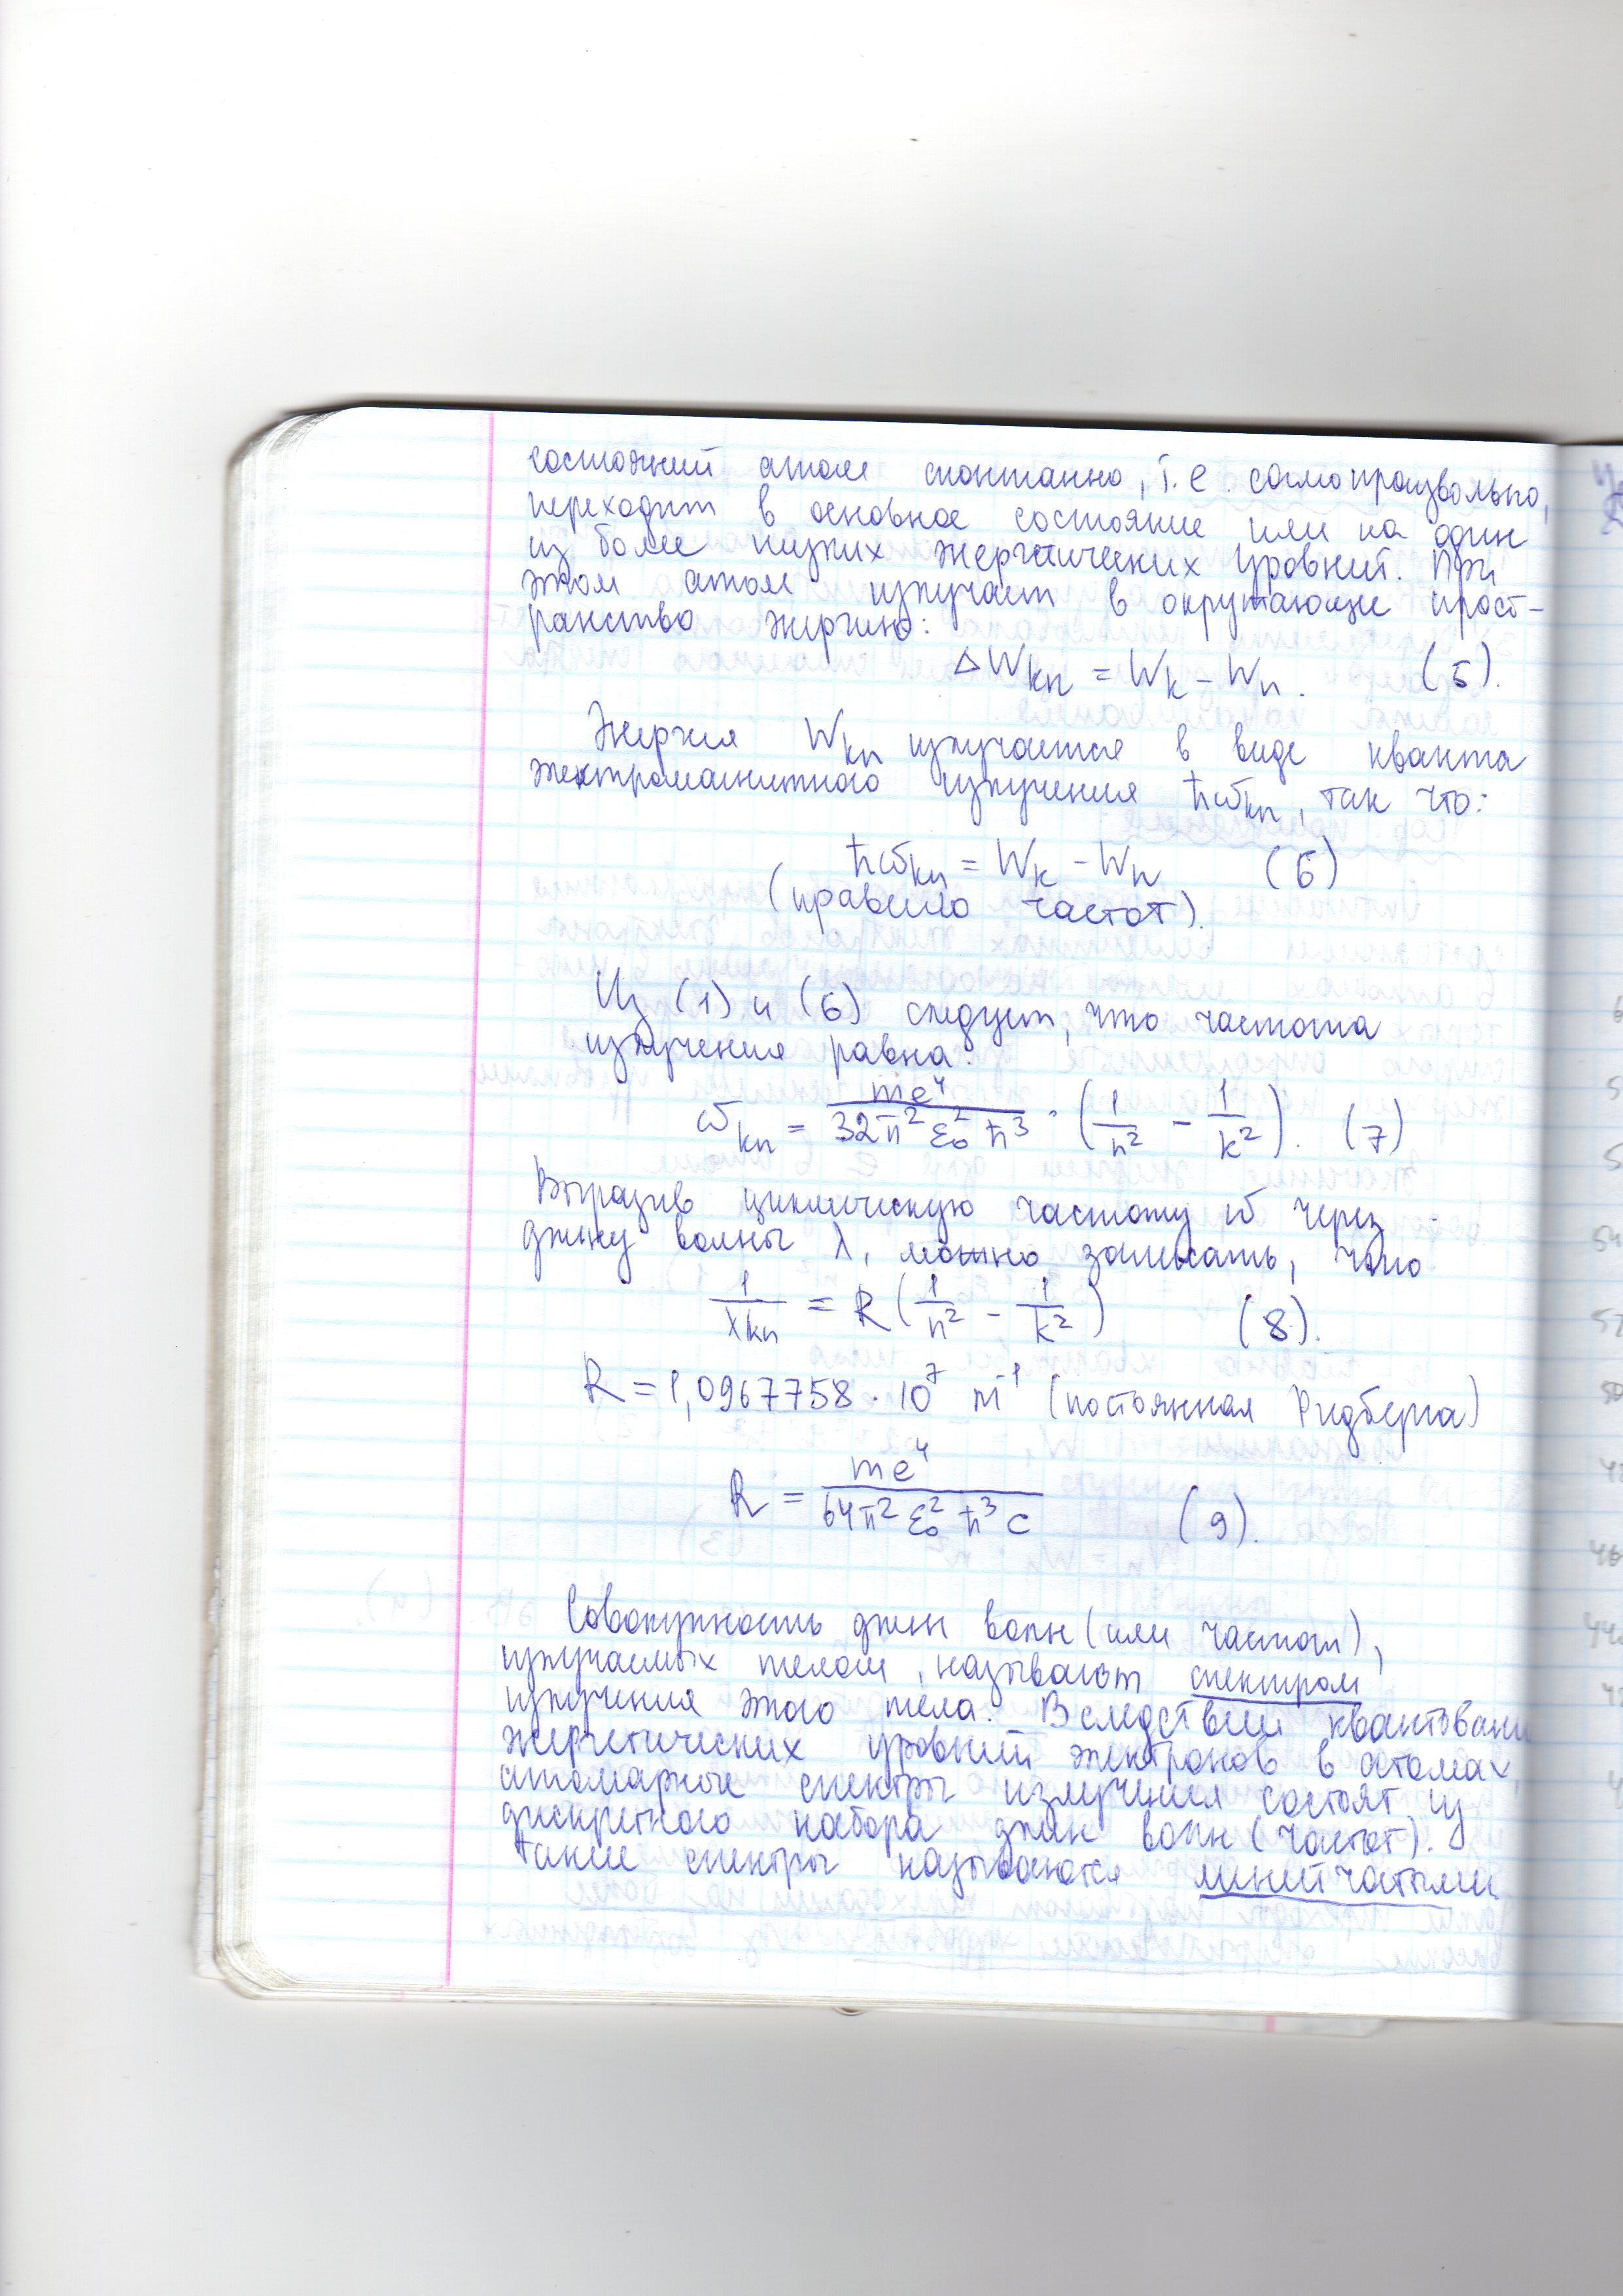 состояний атом спонтанно, т.е. самопроизвольно,
переходит в основное состояние или на один
из более низких энергетических уровней. При
этом атом излучает в окружающее прост-
ранство энергию:
ΔW_kn = W_k - W_n. (5).
Энергия W_kn излучается в виде кванта
электромагнитного излучения ħω_kn, так что:
ħω_kn = W_k - W_n (6)
(правило частот).
Из (1) и (6) следует, что частота
излучения равна:
ω_kn = me⁴ / 32π²ε₀²ħ³ · (1/n² - 1/k²). (7)
Выразив циклическую частоту ω через
длину волны λ, можно записать, что
1/λkn = R (1/n² - 1/k²) (8).
R = 1,0967758 · 10⁷ м⁻¹ (постоянная Ридберга)
R = me⁴ / 64π²ε₀²ħ³c (9).
Совокупность длин волн (или частот),
излучаемых телом, называют спектром
излучения этого тела. Вследствии квантовани
энергетических уровней электронов в атомах,
атомарные спектры излучения состоят из
дискретного набора длин волн (частот).
Такие спектры называются линейчатыми